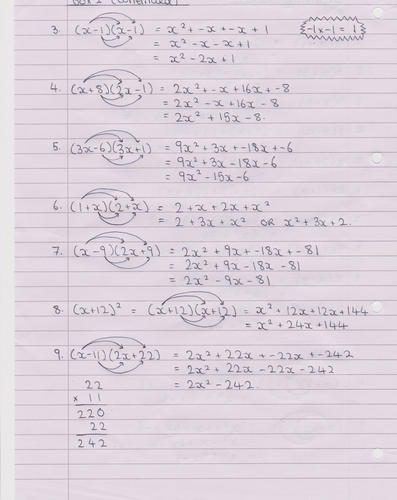 BOX 2 (CONTINUED)
3. (x-1)(x-1) = x² + -x + -x + 1
-1 x -1 = 1
= x² - x - x + 1
= x² - 2x + 1
4. (x+8)(2x-1) = 2x² + -x + 16x + -8
= 2x² - x + 16x - 8
= 2x² + 15x - 8.
5. (3x-6)(3x+1) = 9x² + 3x + -18x + -6
= 9x² + 3x - 18x - 6
= 9x² - 15x - 6
6. (1+x)(2+x) = 2 + x + 2x + x²
= 2 + 3x + x² OR x² + 3x + 2.
7. (x-9)(2x+9) = 2x² + 9x + -18x + -81
= 2x² + 9x - 18x - 81
= 2x² - 9x - 81
8. (x+12)² = (x+12)(x+12) = x² + 12x + 12x + 144
= x² + 24x + 144
9. (x-11)(2x+22) = 2x² + 22x + -22x + -242
= 2x² + 22x - 22x - 242
= 2x² - 242.
22
x 11
220
22
242